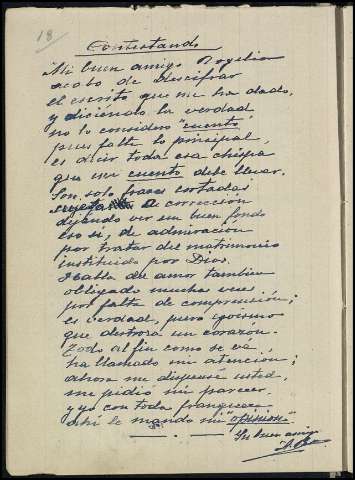 18
Contestando
Mi buen amigo Rogelio
acabo de descifrar
el escrito que me ha dado,
y diciendo la verdad
no lo considero "cuento"
pues falta lo principal,
es decir toda esa chispa
que un cuento debe llevar.
Son solo frases cortadas
sujetas a corrección
dejando ver un buen fondo
eso si, de admiración
por tratar del matrimonio
instituido por Dios.
Habla del amor tambien
obligado muchas veces
por falta de comprensión;
es verdad, puro egoismo
que destroza un corazón.
Todo al fin como se vá
ha llamado mi atención;
ahora me dispense usted,
me pidió mi parecer,
y yo con toda franqueza
ahi le mando mi "opinion"
Su buen amigo